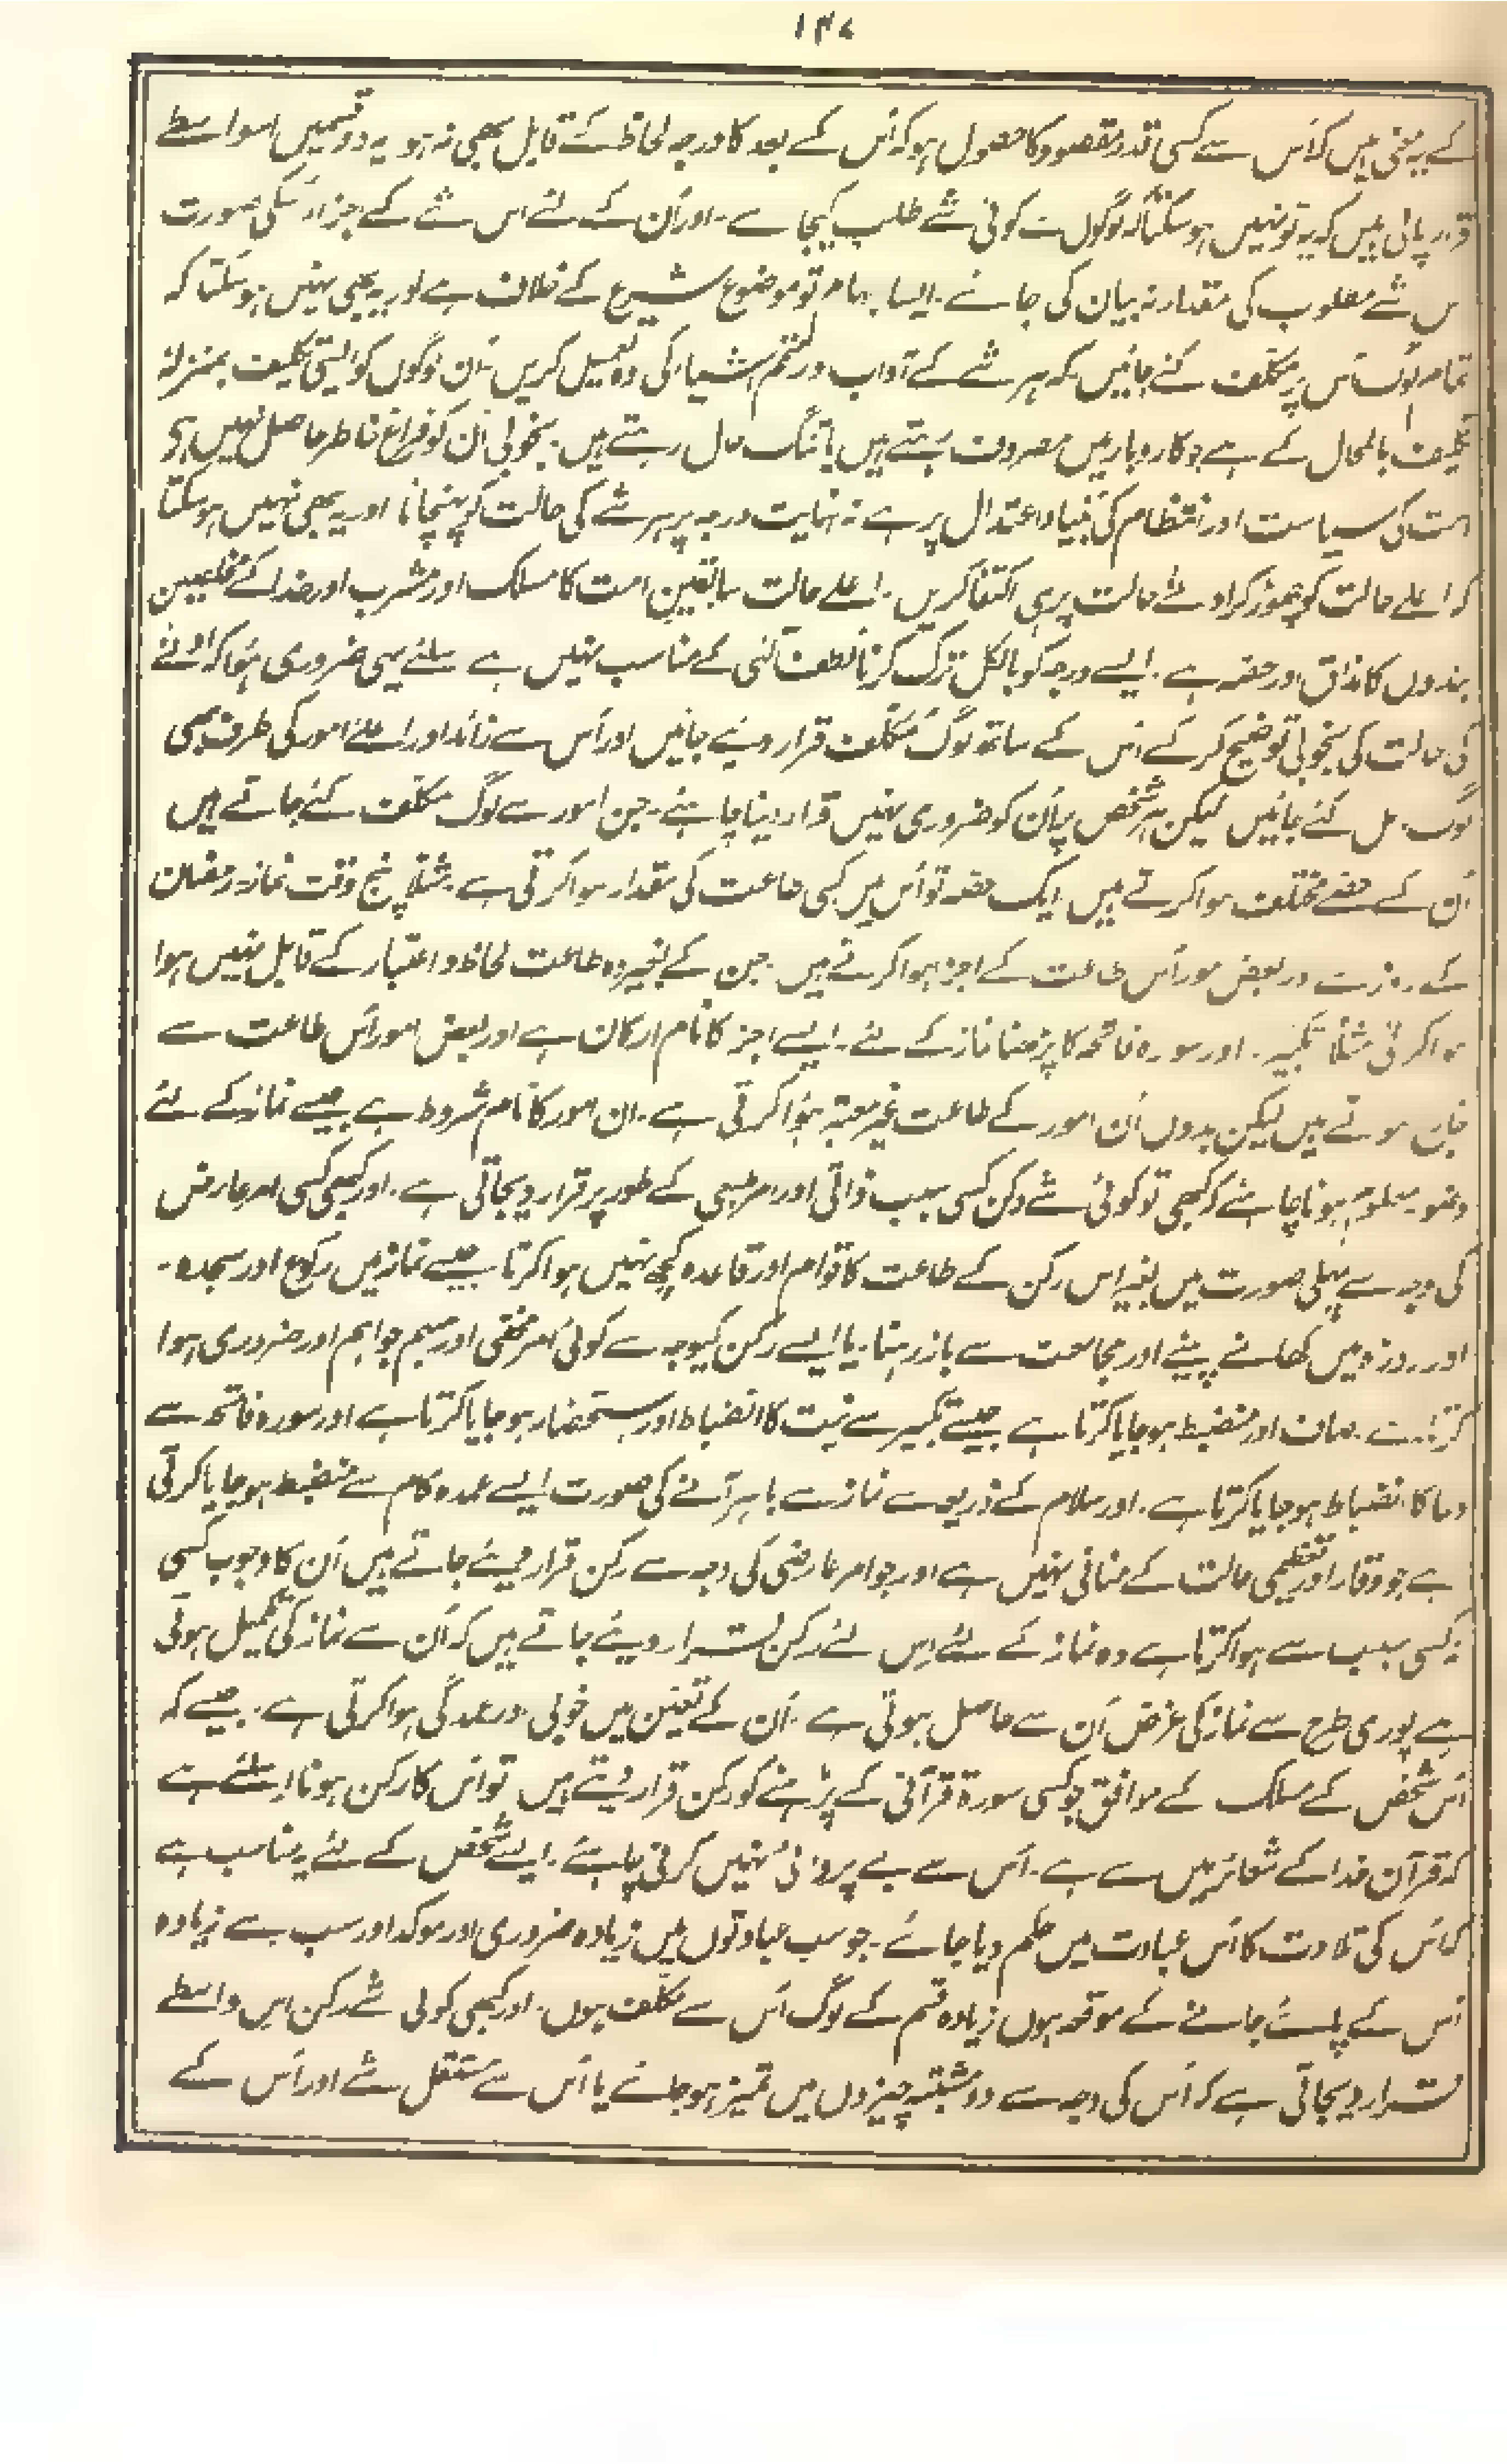 ۱۴۷
کے یہ معنی ہیں کہ اُس سے کسی قدر مقصود کا حصول ہو کہ اُس کے بعد کا درجہ لحاظ کے قابل بھی نہ ہو یہ دو قسمیں اسواسطے
قرار پائی ہیں کہ یہ تو نہیں ہو سکتا کہ لوگوں سے کوئی شے طلب کیجاے۔ اور اُن کے لئے اس شے کے اجزا اُسکی صورت
اس شے مطلوب کی مقدار نہ بیان کی جائے۔ ایسا ابہام تو موضوع شرع کے خلاف ہے اور یہ بھی نہیں ہو سکتا کہ
تمام لوگ اس پر مکلف کئے جائیں کہ ہر شے کے آداب اور متمم اشیاء کی وہ تعمیل کریں۔ اُن لوگوں کو ایسی تکلیف بمنزلہ
تکلیف بالمحال کے ہے جو کاروبار میں مصروف رہتے ہیں یا تنگ حال رہتے ہیں۔ بخوبی اُن کو فراغ خاطر حاصل نہیں ہے
امت کی سیاست اور انتظام کی بنیاد اعتدال پر ہے نہ نہایت درجہ پر ہر شے کی حالت کو پہنچانا اور یہ بھی نہیں ہو سکتا
کہ اعلے حالت کو چھوڑ کر ادنے حالت پر ہی اکتفا کریں۔ اعلے حالت سابقین امت کا مسلک اور مشرب اور خدا کے مخلصین
بندوں کا مذاق اور حصہ ہے۔ ایسے درجہ کو بالکل ترک کرنا لطف الٰہی کے مناسب نہیں ہے اسلئے یہی ضروری ہوا کہ ادنے
کی حالت کی بخوبی توضیح کر کے اُس کے ساتھ لوگ مکلف قرار دیئے جائیں اور اُس سے زائد اور اعلے امور کی طرف بھی
لوگ مائل کئے جائیں لیکن ہر شخص پر اُن کو ضروری نہیں قرار دینا چاہئے۔ جن امور سے لوگ مکلف کئے جاتے ہیں
اُن کے حصے مختلف ہوا کرتے ہیں ایک حصہ تو اُس میں کسی طاعت کی مقدار ہوا کرتی ہے۔ مثلاً پنج وقت نماز۔ رمضان
کے روزے اور بعض امور اُس طاعت کے اجزا ہوا کرتے ہیں۔ جن کے بغیر وہ طاعت لحاظ و اعتبار کے قابل نہیں ہوا
ہوا کرتی مثلاً تکبیر۔ اور سورہ فاتحہ کا پڑھنا نماز کے لئے۔ ایسے اجزا کا نام ارکان ہے اور بعض امور اُس طاعت سے
خارج ہوتے ہیں لیکن بدوں اُن امور کے طاعت غیر معتبر ہوا کرتی ہے۔ ان امور کا نام شروط ہے جیسے نماز کے لئے
وضو۔ معلوم ہونا چاہئے کہ کبھی تو کوئی شے رکن کسی سبب ذاتی اور امر طبعی کے طور پر قرار دیجاتی ہے۔ اور کبھی کسی امر عارض
کی وجہ سے پہلی صورت میں بغیر اس رکن کے طاعت کا قوام اور قاعدہ کچھ نہیں ہوا کرتا جیسے نماز میں رکوع اور سجدہ۔
اور روزہ میں کھانے پینے اور مجامعت سے باز رہنا۔ یا ایسے رکن کیوجہ سے کوئی امر مخفی اور مبہم جو اہم اور ضروری ہوا
کرتا ہے۔ صاف اور منضبط ہو جایا کرتا ہے جیسے تکبیر سے نیت کا انضباط اور استحضار ہو جایا کرتا ہے اور سورہ فاتحہ سے
دعا کا انضباط ہو جایا کرتا ہے۔ اور سلام کے ذریعہ سے نماز سے باہر آنے کی صورت ایسے عمدہ کام سے منضبط ہو جایا کرتی
ہے جو وقار اور تعظیمی حالت کے منافی نہیں ہے اور جو امر عارضی کی وجہ سے رکن قرار دیئے جاتے ہیں اُن کا وجوب کسی
نہ کسی سبب سے ہوا کرتا ہے وہ نماز کے لئے اِس لئے رکن قرار دیئے جاتے ہیں کہ اُن سے نماز کی تکمیل ہوتی
ہے پوری طرح سے نماز کی غرض اُن سے حاصل ہوتی ہے۔ اُن کے تعین میں خوبی اور عمدگی ہوا کرتی ہے۔ جیسے کہ
اُس شخص کے مسلک کے موافق جو کسی سورۃ قرآنی کے پڑہنے کو رکن قرار دیتے ہیں تو اُس کا رکن ہونا اسلئے ہے
کہ قرآن خدا کے شعائر میں سے ہے۔ اُس سے بے پروائی نہیں کرنی چاہئے۔ ایسے شخص کے لئے یہ مناسب ہے
کہ اُس کی تلاوت کا اُس عبادت میں حکم دیا جائے۔ جو سب عبادتوں میں زیادہ ضروری اور موکد اور سب سے زیادہ
اُس کے پاے جانے کے موقعہ ہوں زیادہ قسم کے لوگ اُس سے مکلف ہوں۔ اور کبھی کوئی شے رکن اِس واسطے
قرار دیجاتی ہے کہ اُس کی وجہ سے دو مشتبہ چیزوں میں تمیز ہو جائے یا اُس سے مستقل شے اور اُس کے